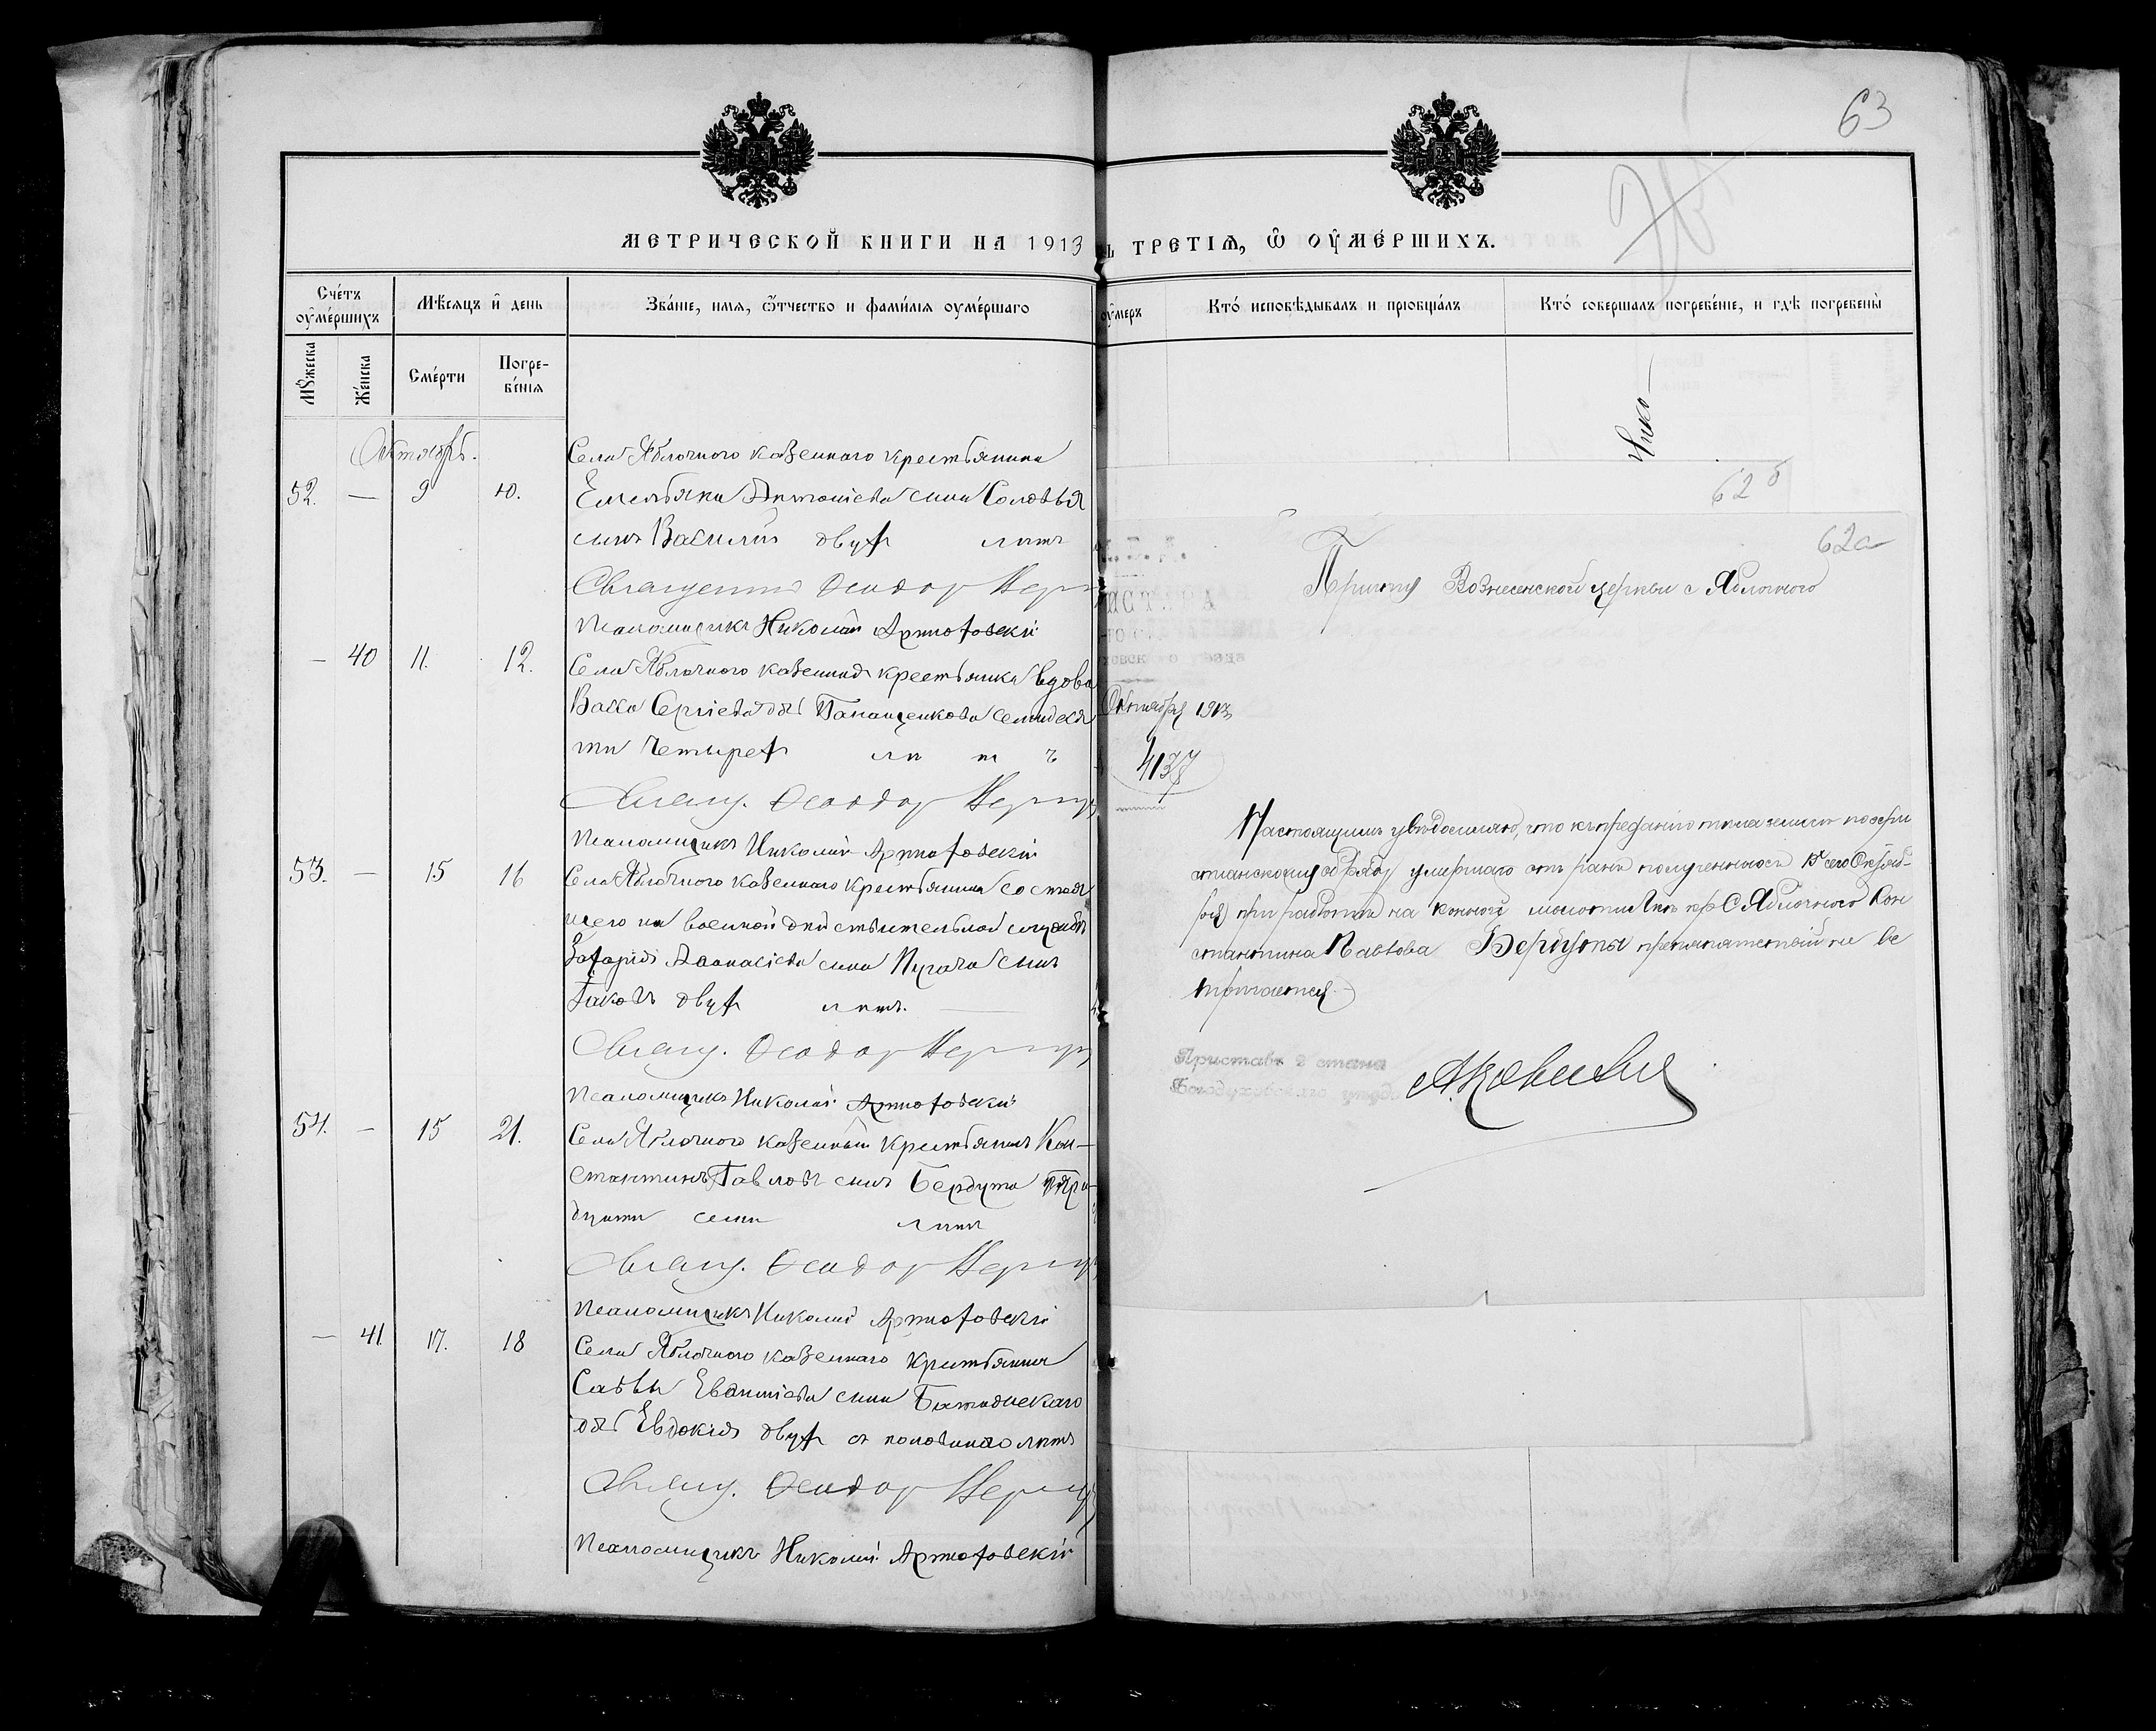 63
МЕТРИЧЕСКОЙ КНИГИ НА 1913
Счетъ оумершихъ
Мѣсяцъ и день
Званіе, имя, ѿтчество и фамилія оумершаго
Мꙋжеска
Женска
Смерти
Погре-
бенія
Октябрь.
Села Яблочного казеннаго крестьянина
52. — 9 10. Емельяна Антоніева сына Соловья
сынъ Василій двухъ лѣтъ
Священникъ Ѳеодоръ
Псаломщикъ Николай Артюховскій
— 40 11. 12. Села Яблочного казенная крестьянка вдова
Васса Сергіева дочь Панащенкова семидеся
ти четырехъ лѣтъ
Свящ. Ѳеодоръ
Псаломщикъ Николай Артюховскій
53. — 15 16 Села Яблочного казеннаго крестьянина состоя
щего на военной дѣйствительной службѣ
Захарія Аѳанасіева сына Пугача сынъ
Іаковъ двухъ лѣтъ.
Свящ. Ѳеодоръ
Псаломщикъ Николай Артюховскій
54. — 15 21. Села Яблочного казенный крестьянинъ Кон-
стантинъ Павловъ сынъ Бердута три-
дцати семи лѣтъ
Свящ. Ѳеодоръ
Псаломщикъ Николай Артюховскій
— 41 17. 18 Села Яблочного казеннаго крестьянина
Саввы сына
дочь Евдокія двухъ съ половиною лѣтъ
Свящ. Ѳеодоръ
Псаломщикъ Николай Артюховскій
ТРЕТІЯ, Ѿ ОУМЕРШИХЪ.
оумеръ
Кто исповѣдывалъ и пріобщалъ
Кто совершалъ погребеніе, и гдѣ погребены
62 б
62а
Причту Вознесенской церкви с Яблочного
Октября 1913
4137
Настоящимъ увѣдомляю, что къ преданію тѣла землѣ по хри
стіанскому обряду умершаго отъ раны полученной 15 сего Октяб-
ря при работѣ на конной молотилкѣ кр С Яблочного Кон
стантина Павлова Бердуты препятствій не вс
трѣчается
Приставъ 2 стана
Богодуховскаго уѣзда